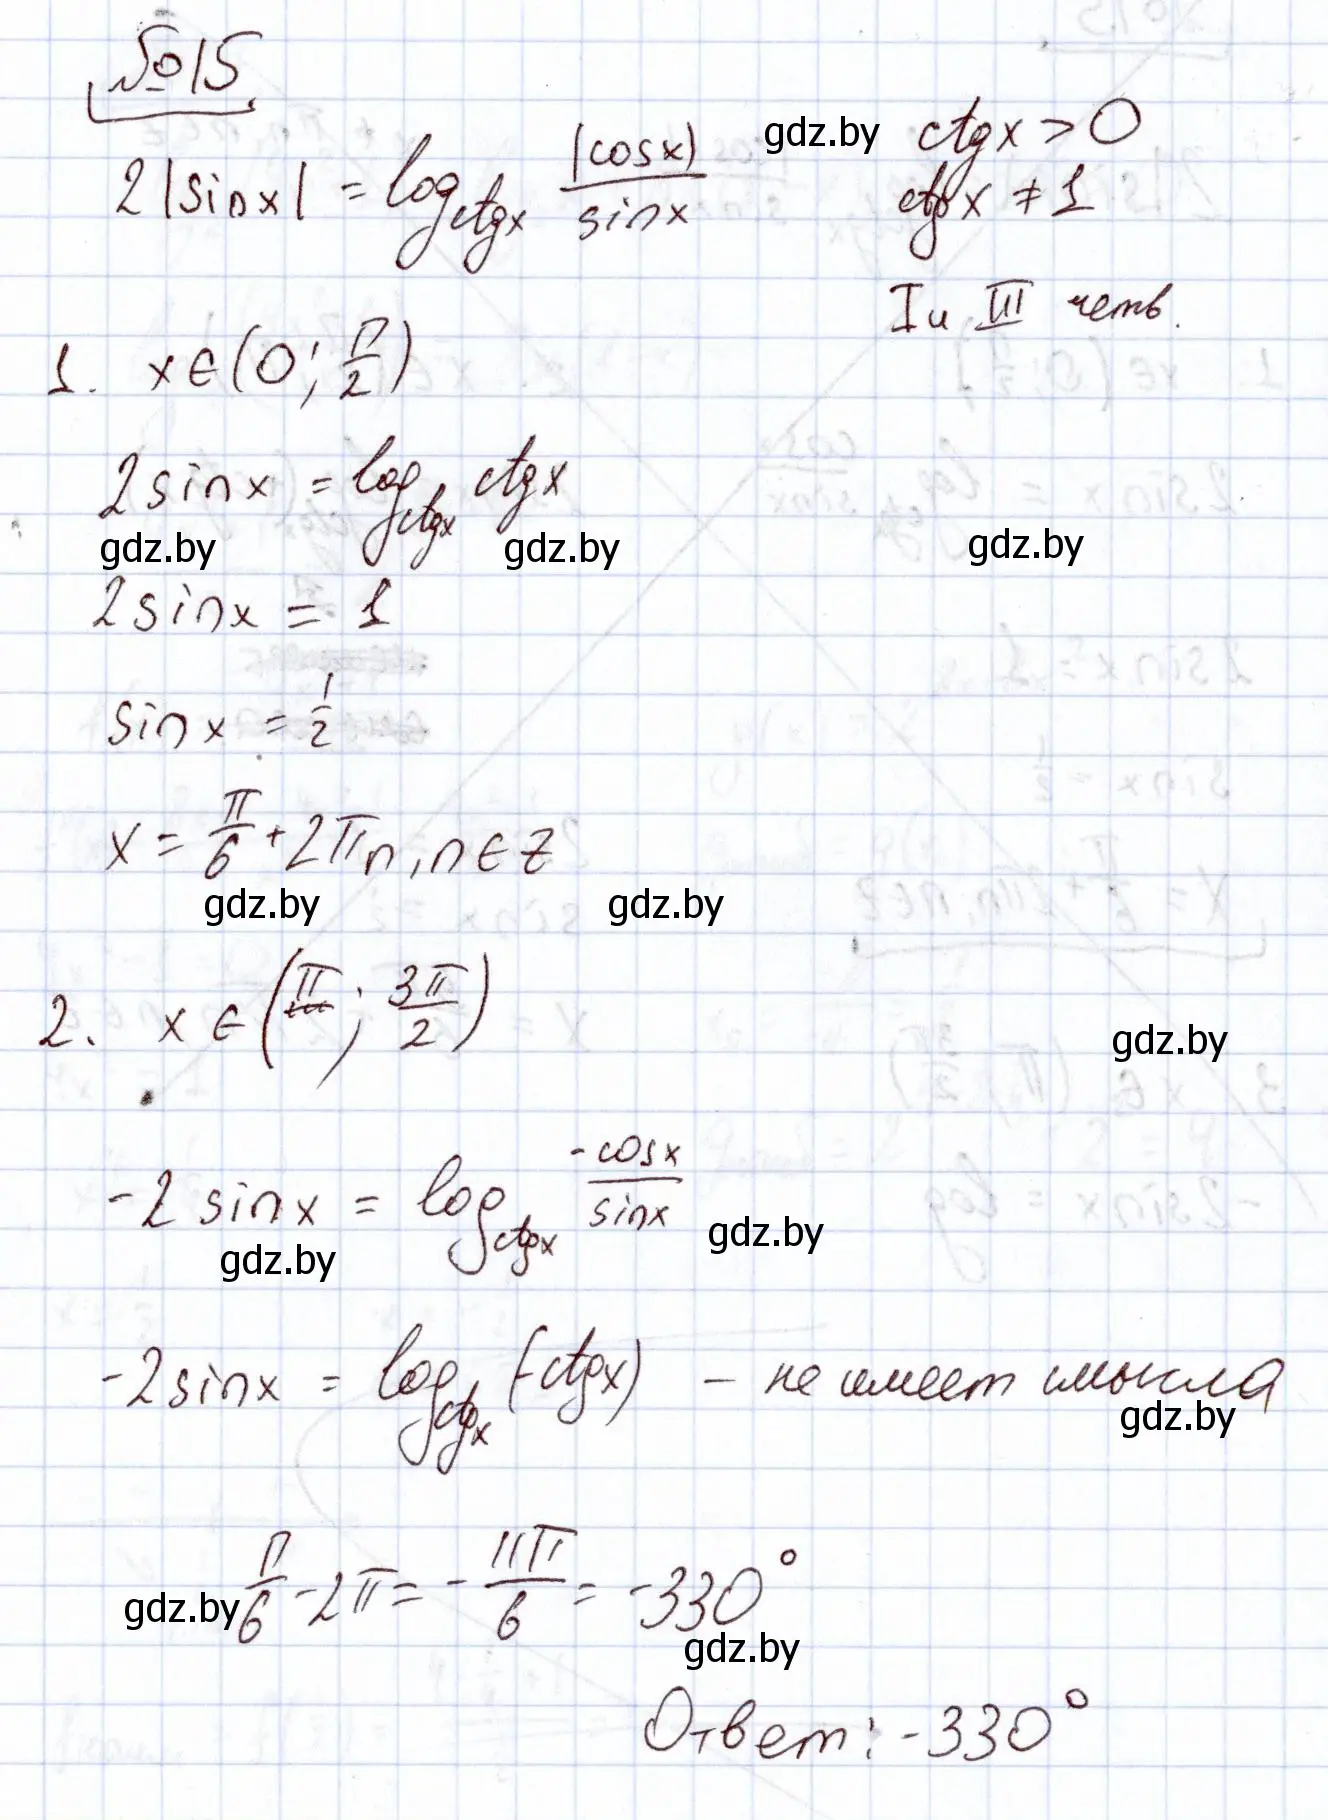 №15
2|sinx| = log_ctgx |cosx|/sinx gdz.by ctgx > 0
ctgx ≠ 1
I и III четв.
1. x∈(0; π/2)
2sinx = log_ctgx ctgx
gdz.by gdz.by gdz.by
2sinx = 1
sinx = 1/2
x = π/6 + 2πn, n∈Z
gdz.by gdz.by
2. x∈(π; 3π/2)
gdz.by
-2sinx = log_ctgx -cosx/sinx
gdz.by gdz.by
-2sinx = log_ctgx (-ctgx) – не имеет смысла
gdz.by
π/6 - 2π = -11π/6 = -330°
gdz.by
gdz.by
Ответ: -330°